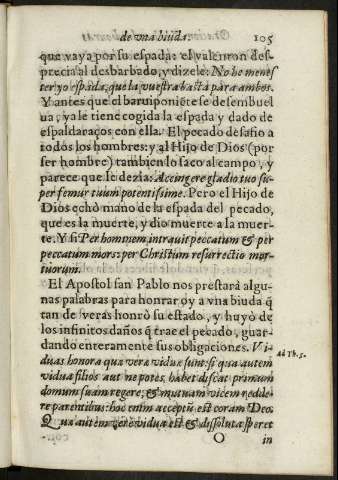 de vna biuda. 105
que vaya por su espada: el valenron des-
precia al desbarbado, y dizele: No he menes
ter yo espada, que la vuestra basta para ambos.
Y antes que el baruiponiẽte se desembuel
ua, ya le tiene cogida la espada y dado de
espaldaraços con ella. El pecado desafio a
todos los hombres: y al Hijo de Dios (por
ser hombre) tambien lo saco al campo, y
parece que le dezia: Accingere gladio tuo su-
per femur tuum potentissime. Pero el Hijo de
Dios echò mano de la espada del pecado,
que es la muerte, y dio muerte a la muer-
te. Y si Per hominem intrauit peccatum & per
peccatum mors: per Christum resurrectio mor-
tuorum.
El Apostol san Pablo nos prestará algu-
nas palabras para honrar oy a vna biuda q̃
tan de veras honrò su estado, y huyò de
los infinitos daños q̃ trae el pecado, guar-
dando enteramente sus obligaciones. Vi-
duas honora quæ verè viduæ sunt: si qua autem
vidua filios aut nepotes habet discat primum
domum suam regere, & mutuam vicem redde-
re parentibus: hoc enim acceptũ est coram Deo.
Quæ autem verè vidua est & desolata speret
O in
Ad Th. 5.